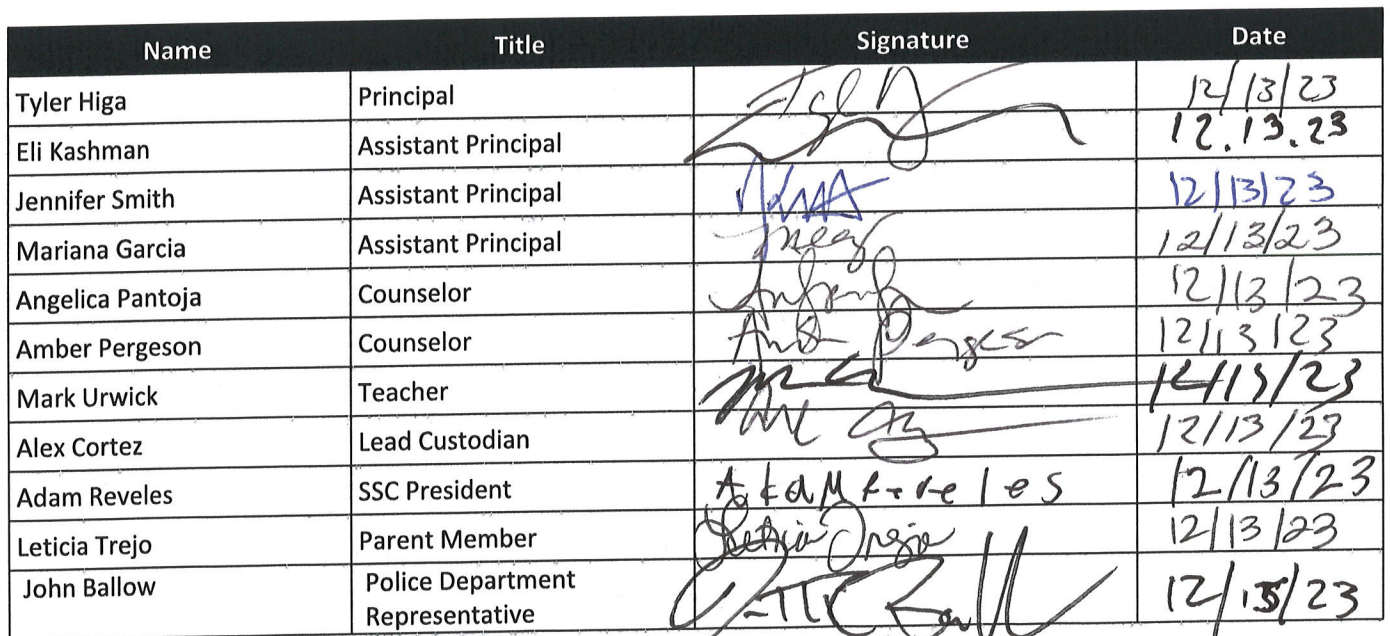 Name Title Signature Date
Tyler Higa Principal 12/13/23
Eli Kashman Assistant Principal 12.13.23
Jennifer Smith Assistant Principal 12/13/23
Mariana Garcia Assistant Principal 12/13/23
Angelica Pantoja Counselor 12/13/23
Amber Pergeson Counselor 12/13/23
Mark Urwick Teacher 12/13/23
Alex Cortez Lead Custodian 12/13/23
Adam Reveles SSC President 12/13/23
Leticia Trejo Parent Member Leticia Trejo 12/13/23
John Ballow Police Department 12/13/23
Representative